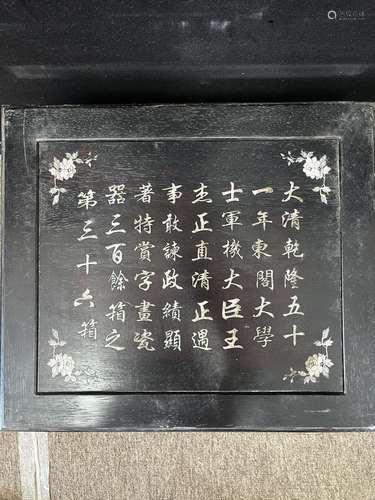 大清乾隆五十
一年東閣大學
士軍機大臣王
杰正直清正遇
事敢諫政績顯
著特賞字畫瓷
器三百餘箱之
第三十六箱